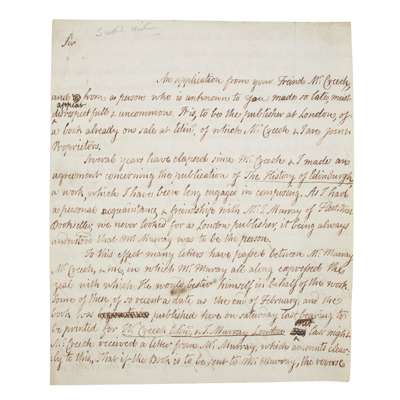 Sir
An application from your Friend Mr. Creech,
and from a person who is unknown to you made so lately must
appear
disrespectful & uncommon. It is, to be the publisher at London, of
a book already on sale at Edinr. of which Mr Creech & I are joint
Proprietors.
Several years have elapsed since Mr. Creech & I made an
agreement concerning the publication of The History of Edinburgh
a work, which I have been long engaged in composing. As I had
a personal acquaintance, & friendship with Mr. J. Murray of Fleetstreet
Bookseller, we never looked for a London publisher, it being always
understood that Mr. Murray was to be the person.
To this effect many letters have passed between Mr Murray
Mr. Creech, & me, in which Mr. Murray all along expressed the
zeal with which He would bestir himself in behalf of the work.
Some of them of so recent a date as the end of February, and the
book was published here on Saturday last bearing to
be printed for W. Creech Edinr. & J. Murray London last night
Mr. Creech received a letter from Mr. Murray, which amounts clear-
ly to this, That if the Book is to be sent to Mr. Murray, the reverse